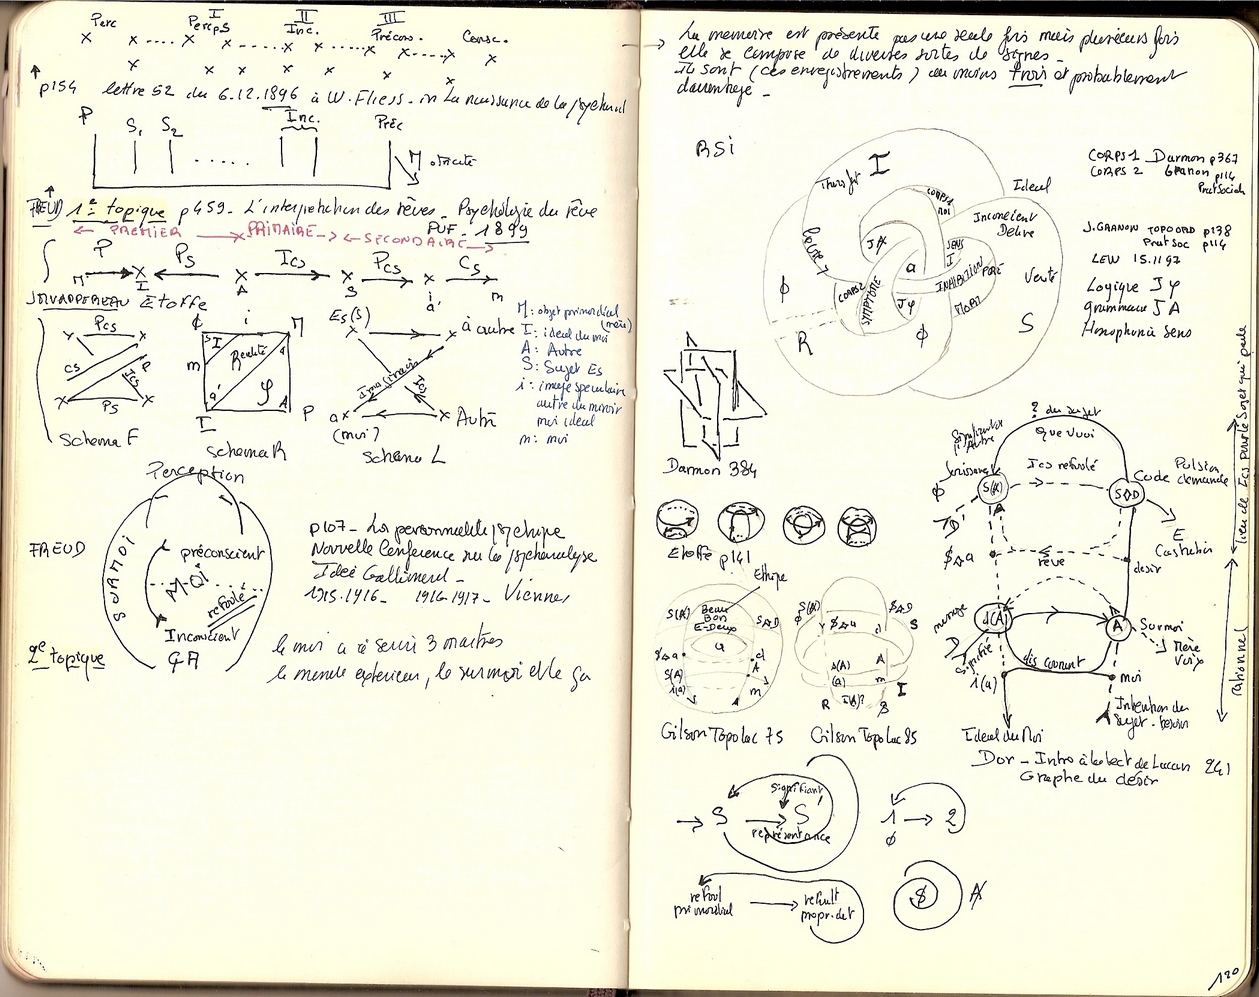 Perc
I
Percps
II
Inc.
III
Précons.
Consc.
p154 lettre 52 du 6.12.1896 à W. Fliess - in La naissance de la psychanal
P
S1 S2
Inc.
Préc
M
FREUD 1e topique p459 - L'interprétation des rêves - Psychologie du rêve
PUF - 1899
PREMIER PRIMAIRE SECONDAIRE
P Ps Ics Pcs Cs
M I A S i a' m
Etoffe
Pcs
Cs
Ics
Ps
Schema F
ϕ i M
S I
Réalité
m
a'
φ
I A P
Schema R
Es(S) à autre
Imaginaire
Ics
a (moi) Autre
Schema L
M: objet primordial (mère)
I: idéal du moi
A: Autre
S: Sujet Es
i: image spéculaire
autre du miroir
moi idéal
m: moi
Perception
FREUD
SURMOI
préconscient
MOI
refoulé
Inconscient
ÇA
2e topique
p107 - La personnalité psychique
Nouvelle Conférence sur la psychanalyse
Idées Gallimard -
1915.1916 - 1916-1917 - Vienne,
le moi a à servir 3 maitres
le monde extérieur, le surmoi et le ça
La mémoire est présente pas une seule fois mais plusieurs fois
elle se compose de diverses sortes de signes -
Ils sont (ces enregistrements) au moins trois et probablement
davantage -
RSi
I
Transfert
CORPS 1
MOI
Ideal
Inconscient
Délire
JA
SENS
I
a
INHIBITION
CORPS 2
SYMPTOME
Jφ
MORT
Verité
ϕ
ϕ
R
S
CORPS 1 Darmon p367
CORPS 2 Granon p114
Prat Social
J. GRANON TOPO ORD p138
Prat Soc p114
LEW 15.11.97
Logique Jφ
grammaire JA
Homophonie sens
Darmon 384
Etoffe p141
Ethique
S(A)
Beau
Bon
E-Deux
S◊D
a
$◊a
d
A
S(A)
i(a)
m
Gilson Topo Lac 75
S(A)
$◊D
$◊a
d
S
A
m
R
I(A)?
$
I
Gilson Topo Lac 85
? du sujet
Que Vuoi
Signifiant
Autre
Jouissance
Ics refoulé
Code Pulsion
demande
S(A)
S◊D
Castration
$◊a
rêve
désir
message
s(A)
A
Surmoi
Signifié
discourant
Mère
Voix
i(a)
moi
Intention du
Sujet - besoin
Ideal du Moi
lieu de l'Ics pour le Sujet qui parle
rationnel
Dor - Intro à la lect de Lacan 241
Graphe du désir
signifiant
S S'
représentance
1 2
ϕ
refoul
primordial
refoult
propr. dit
$ A
120